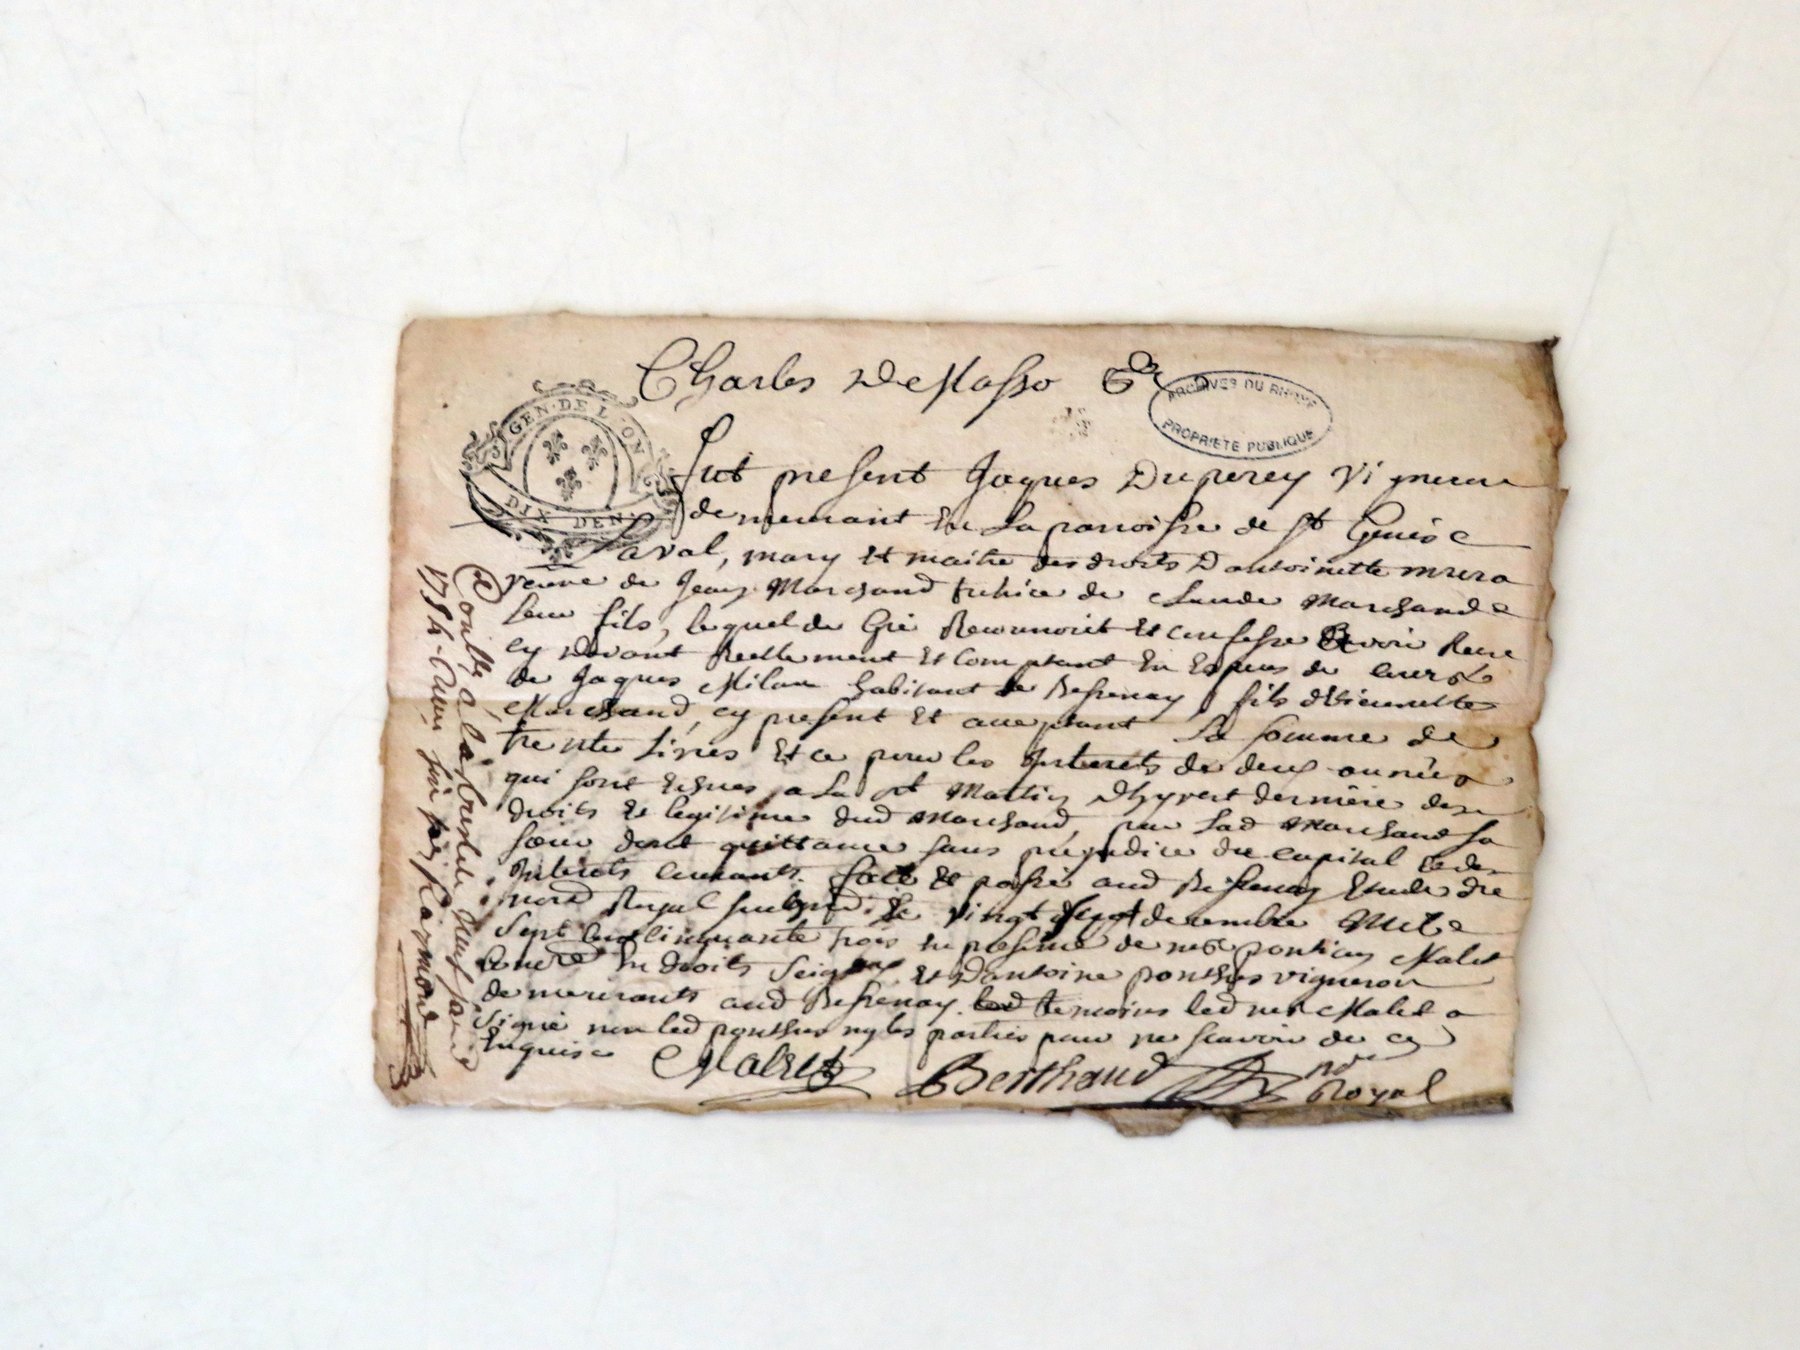 Charles De Masso
GEN. DE LYON
DIX DEN.
ARCHIVES DU RHONE
PROPRIETE PUBLIQUE
fut present Jaques Duperey Vigneron
demeurant en La parroisse de St Genis
Laval, mary et maitre des droits D antoinette
veuve de Jean Marchand tutrice de Claude Marchand
leur fils, lequel de Gré Reconnoit et confesse avoir Receu
cy devant Reellement et Comptant en Especes de cours
de Jaques Milan habitant de Bessenay, fils d'Etiennette
Marchand, cy present et acceptant La somme de
trente Livres et ce pour les Interets de deux années
qui sont echues a La st Martin d'hyvert derniere des
droits de legitime dud Marchand, par Lad Marchand sa
soeur dont quittance sans prejudice du capital et des
Interets courants. fait et passé aud Bessenay Etude du
nore Royal soubzné. Le vingt sept decembre Mil
Sept Cent cinquante trois en presence de mre Malet
en droits Seigx et D antoine ponthus vigneron
demeurants aud Bessenay. temoins led mre Malet a
signé non led ponthus ny les parties pour ne scavoir de ce
Enquis
Malet Berthaud nore
Royal
Conllé à l'arbresle neuf janv
1754. Reçu six s Raymond